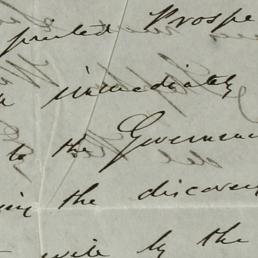 printed Prospe
immediately
to the Governme
ing the discovery
wile by the